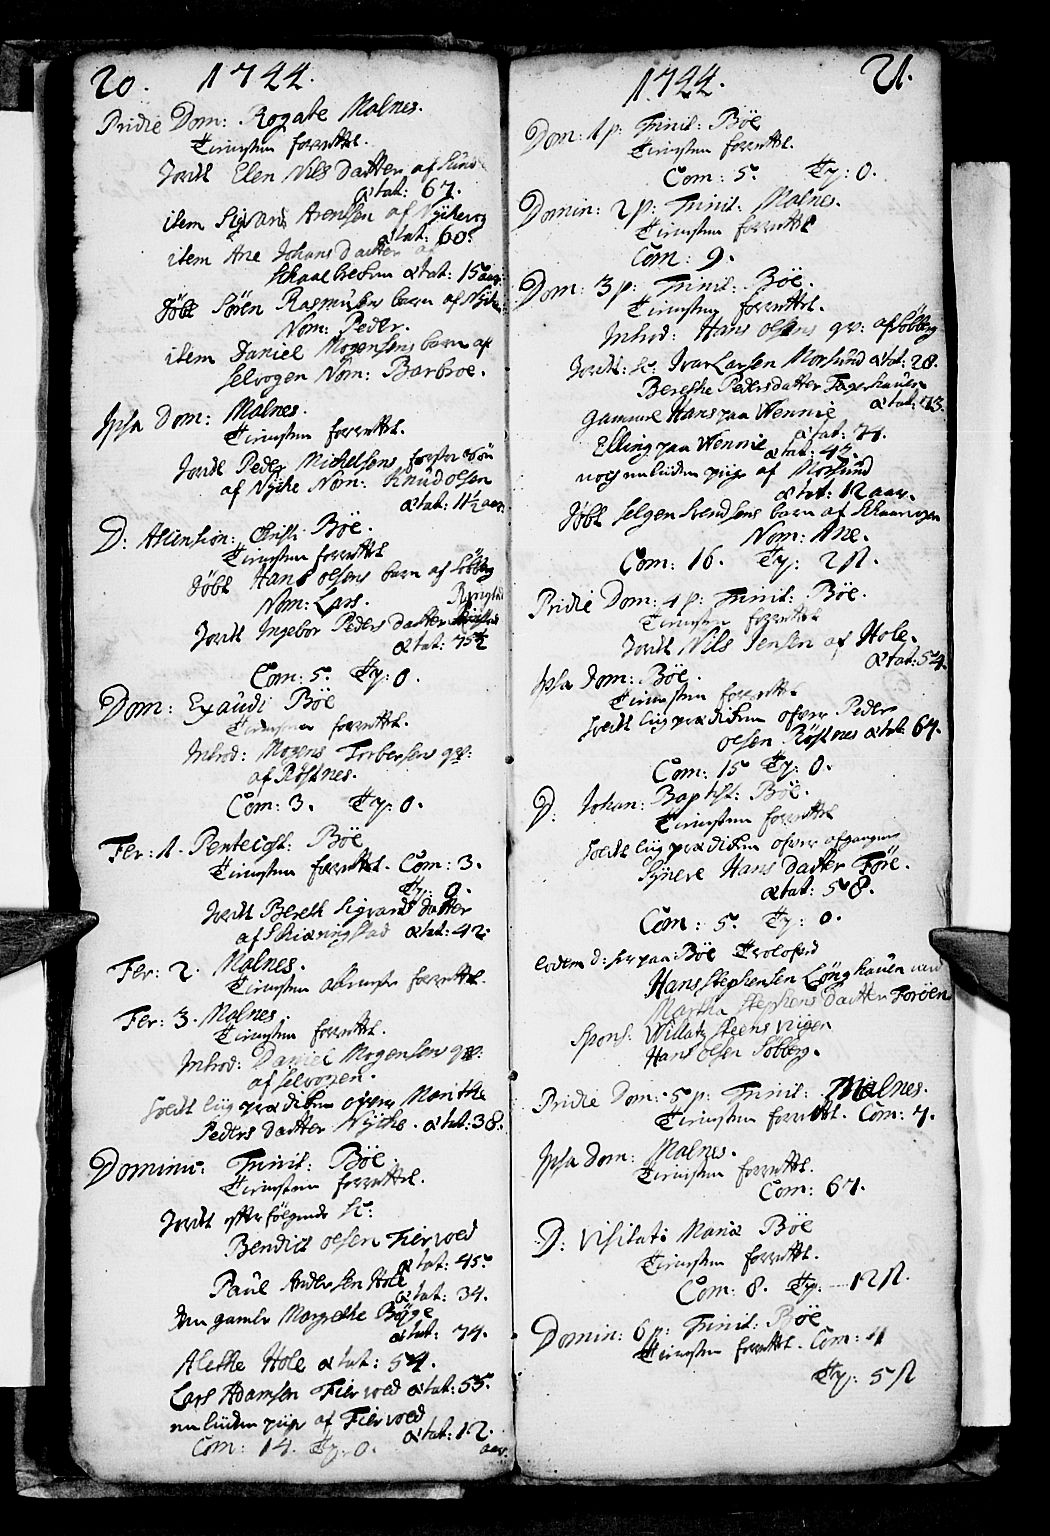 20. 1744.
Pridie Dom: Rogate Malnes.
Tienesten forrettet.
Jordet Elen Nils datter af Sund
ætat: 67.
item Sigvard Arensen af Nyke
ætat: 60.
item Ane Johans datter af
ætat: 15 aar.
Döbt Sören Rasmusens barn af Nyke
Nom: Peder.
item Daniel Mogensens barn af
Selvogen Nom: Barbroe.
Ipsa Dom: Malnes.
Tienesten forrettet.
Jordet Peder Michelsens sön
af Nyke Nom: Knud olsen
ætat: 11½ aar.
D: Ascension: Christi Böe.
Tienesten forrettet
Döbt Hans olsens barn af Söberg
Nom: Lars.
Jordet Ingebor Peders datter
ætat: 75½
Com: 5. Ty: 0.
Dom: Exaudi Böe
Tienesten forrettet.
Introd: Mogens Torbersens qv:
af Röstnes.
Com: 3. Ty: 0.
Fer: 1. Pentecost: Böe
Tienesten forrettet. Com: 3.
Ty: 0.
Jordet Bereth Sigvards datter
af Skiæringstad ætat: 42.
Fer: 2. Malnes.
Tienesten forrettet.
Fer: 3. Malnes.
Tienesten forrettet.
Introd: Daniel Mogensens qv:
af Selvogen.
holdt liigprædiken over Marithe
Peders datter Nyke. ætat: 38.
Domin: Trinit: Böe.
Tienesten forrettet.
Jordet efterfölgende Sc:
Bendict olsen Fiervold
ætat: 45.
Paul Andersen Hole
ætat: 34.
den gamle Margrethe Böge
ætat: 74.
Alethe Hole ætat: 54.
Lars Adamsen Fiervold ætat: 55.
en liiden piige af Fiervold
ætat: 12 aar.
Com: 14. Ty: 0.
1744. 21.
Dom: 1 p: Trinit: Böe
Tienesten forrettet.
Com: 5. Ty: 0.
Domin: 2 p: Trinit: Malnes.
Tienesten forrettet
Com: 9.
Dom: 3 p: Trinit: Böe.
Tienesten forrettet.
Introd: Hans olsens qv: af Söberg
Jordet: Sc: Ivar Larsen Morsund ætat: 28.
Berethe Pedersdatter
ætat: 73.
Gammel Hans paa Wennie
ætat: 74.
Elling paa Wennie
ætat: 42.
nock en liiden piige af Morsund
ætat: 12 aar.
Döbt Helgen Svendsens barn af
Nom: Ane.
Com: 16. Ty: 2 ß.
Pridie Dom: 4 p: Trinit: Böe.
Tienesten forrettet
Jordet Nils Jensen af Hole.
ætat: 54.
Ipsa dom: Böe.
Tienesten forrettet
holdt liigprædiken ofver Peder
olsen Röstnes ætat: 67.
Com: 15 Ty: 0.
D: Johan: Baptist: Böe.
Tienesten forrettet
holdt liigprædiken ofver afgangne
Hans datter Före.
ætat: 58.
Com: 5. Ty: 0.
eodem d: her paa Böe Trolofved
Hans Stephensen med
Martha Stephens datter
Spons: Willatz Steensen
Hans olsen Söberg.
Pridie Dom: 5 p: Trinit: Malnes.
Tienesten forrettet. Com: 7.
Ipsa dom: Malnes.
Tienesten forrettet.
Com: 67.
D: Visitati Mariæ Böe
Tienesten forrettet.
Com: 8. Ty: 12 ß.
Domin: 6 p: Trinit: Böe
Tienesten forrettet. Com: 11
Ty: 5 ß